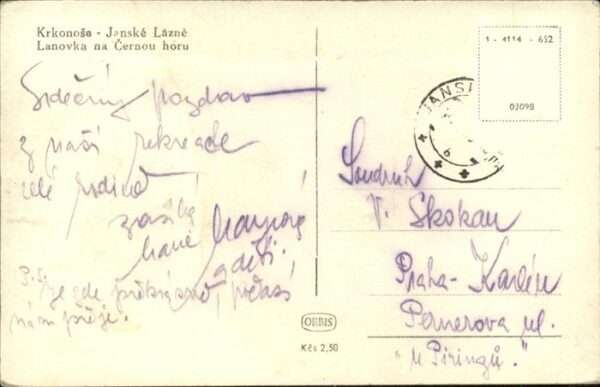 Krkonoše - Janské Lázně
Lanovka na Černou horu
Srdečný pozdrav
z naší rekreace
celé rodině
zasílá
a děti.
P.S.
Je zde překrásně, počasí
nám přeje.
1 - 4114 - 652
03098
JANSK
Soudruh
V. Skokan
Praha - Karlín
Pernerova ul.
"u Piringů."
ORBIS
Kčs 2,50